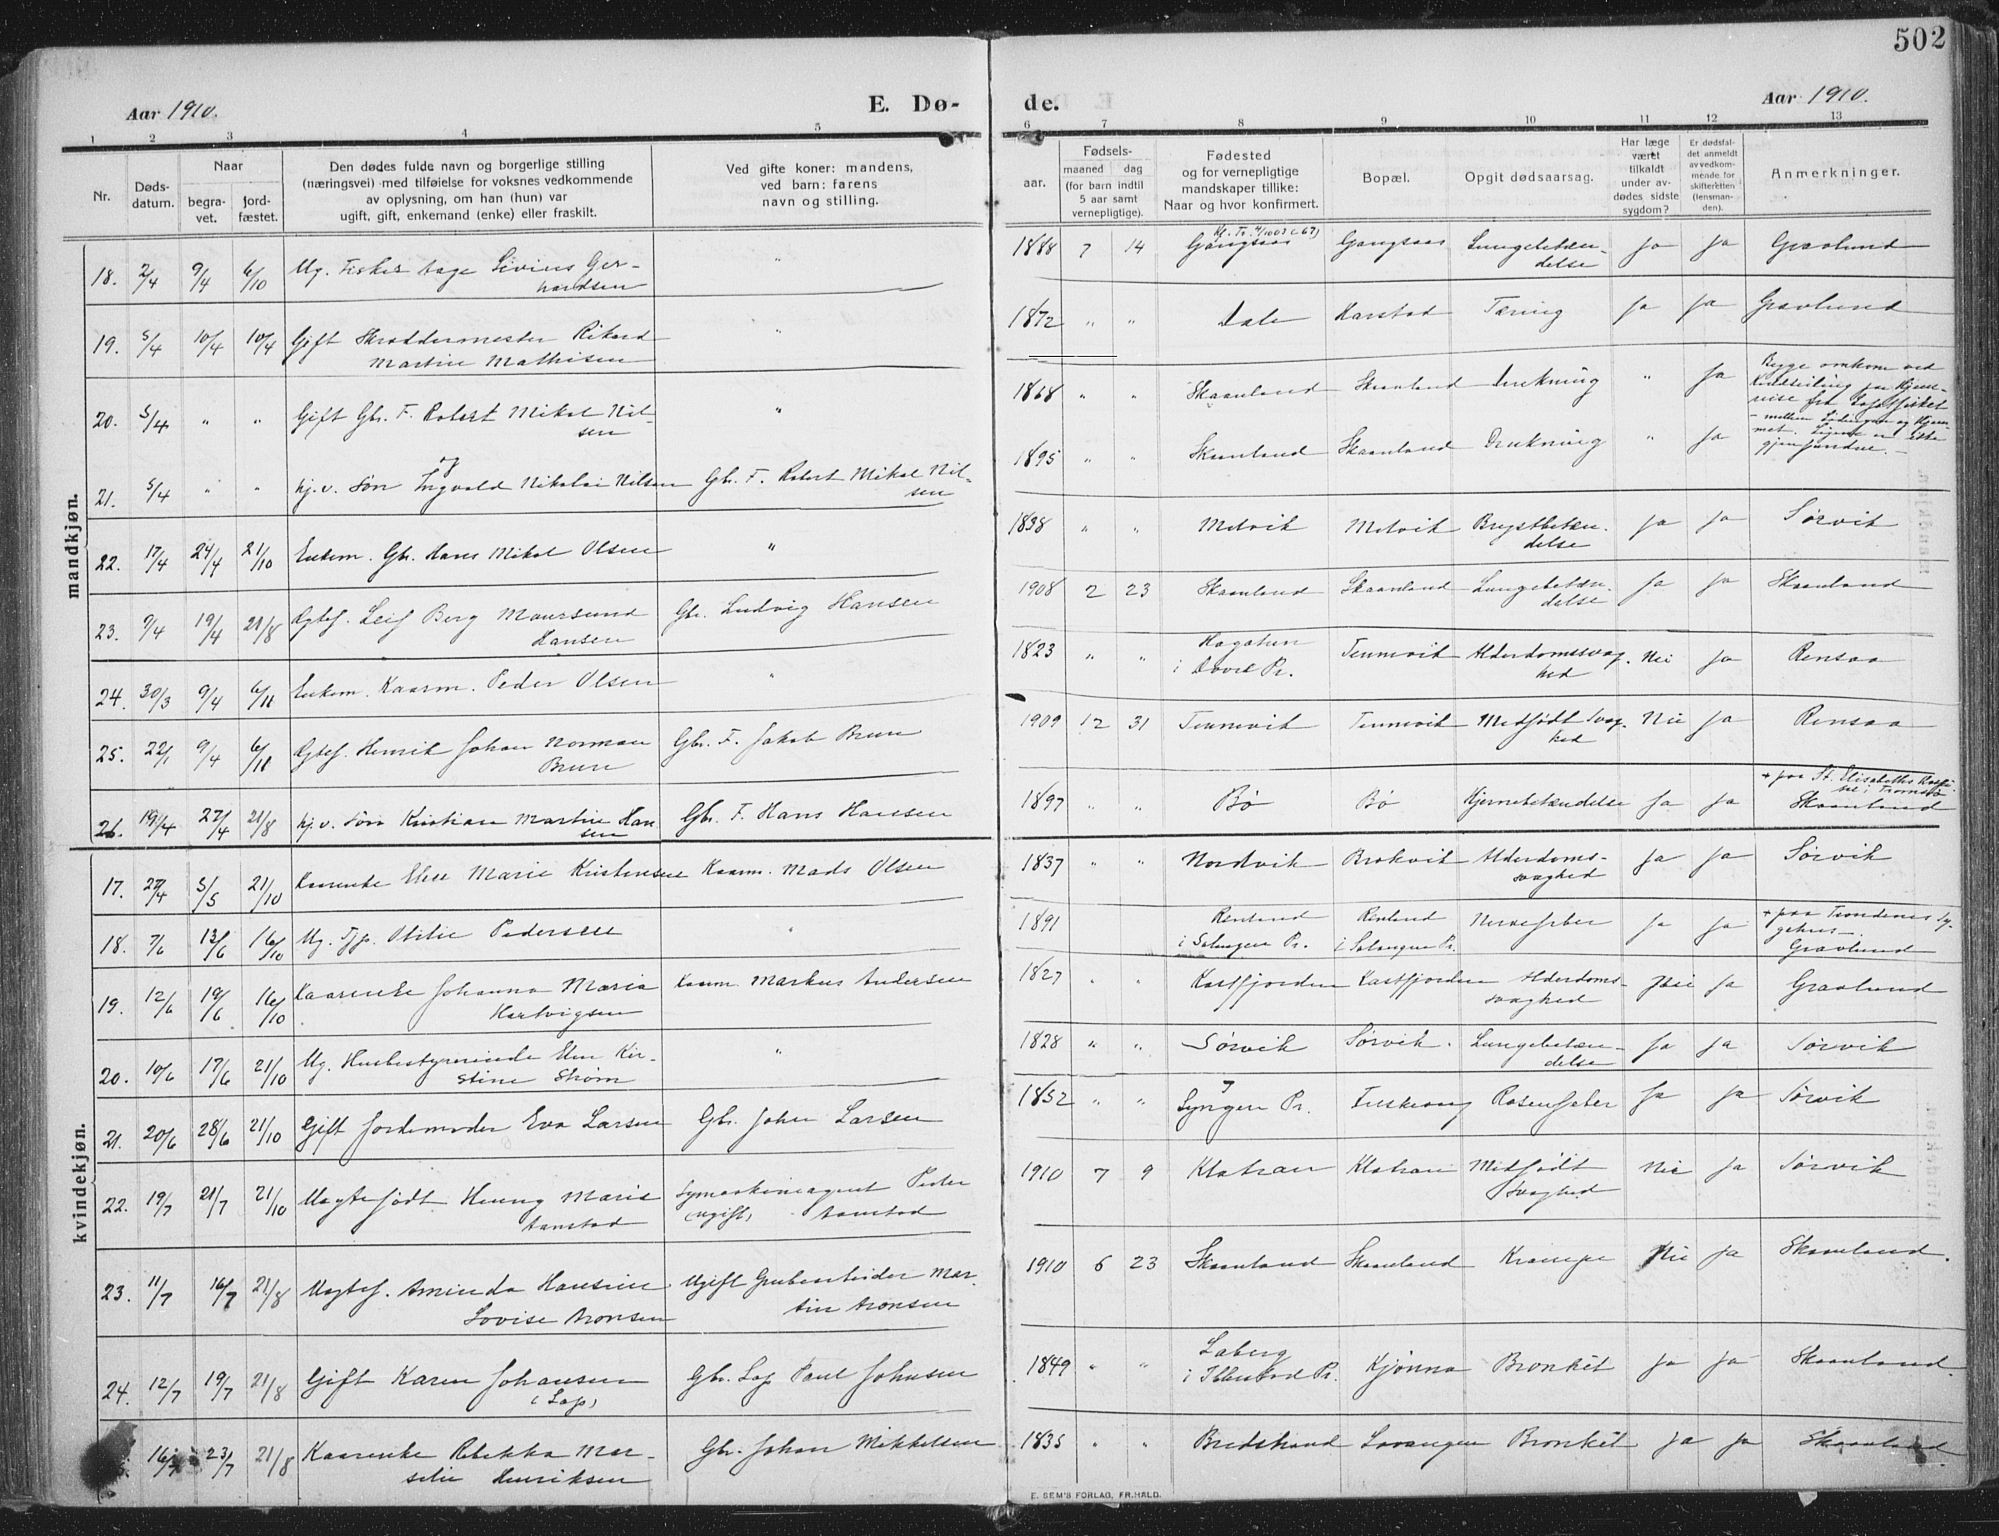 502
Aar 1910.
E. Dø-
de.
Aar 1910.
1 2 3 4 5 6 7 8 9 10 11 12 13
Nr.
Døds-
datum.
Naar
begra-
vet.
jord-
fæstet.
Den dødes fulde navn og borgerlige stilling
(næringsvei) med tilføielse for voksnes vedkommende
av oplysning, om han (hun) var
ugift, gift, enkemand (enke) eller fraskilt.
Ved gifte koner: mandens,
ved barn: farens
navn og stilling.
aar.
Fødsels-
maaned dag
(for barn indtil
5 aar samt
vernepligtige).
Fødested
og for vernepligtige
mandskaper tillike:
Naar og hvor konfirmert.
Bopæl.
Opgit dødsaarsag.
Har læge
været
tilkaldt
under av-
dødes sidste
sygdom?
Er dødsfal-
det anmeldt
av vedkom-
mende for
skifteretten
(lensman-
den).
Anmerkninger.
mandkjøn.
18. 2/4 9/4 6/10 Ug. Fisker Aage Sivius Ger-
hardsen " 1888 7 14 Gangsaas Gangsaas Lungebetæn-
delse Ja Ja Gravlund
19. 5/4 10/4 10/4 Gift Skræddermester Rikard
Martin Mathisen " 1872 " " Dale Harstad Tæring Ja Ja Gravlund
20. 5/4 " " Gift Gbr. F. Robert Mikal Nil-
sen " 1868 " " Skaanland Skaanland Drukning " Ja Begge omkom ved
Kuldseiling paa Hjem-
reise fra Lofotfisket
- mellem Lødingen og Hjem-
met. Ligene er ikke
gjenfundne. -
og
21. 5/4 " " hj.v. Søn Ingvald Nikolai Nilsen Gbr. F. Robert Mikal Nil-
sen 1895 " " Skaanland Skaanland Drukning " Ja
22. 17/4 24/4 21/10 Enkem. Gbr. Hans Mikal Olsen " 1838 " " Melvik Melvik Brystbetæn-
delse Ja Ja Sørvik
23. 9/4 19/4 21/8 Egtef. Leif Berg Maursund
Hansen Gbr. Ludvig Hansen 1908 2 23 Skaanland Skaanland Lungebetæn-
delse Ja Ja Skaanland
24. 30/3 9/4 6/11 Enkem. Kaarm. Peder Olsen " 1823 " " Hagatun
i Dovre Pr. Tennevik Alderdomssvag-
hed Nei Ja Rensaa
25. 22/1 9/4 6/11 Egtef. Henrik Johan Norman
Brun Gbr. F. Jakob Brun 1909 12 31 Tennevik Tennevik Medfødt Svag-
hed Nei Ja Rensaa
26. 19/4 27/4 21/8 hj.v. Søn Kristian Martin Han-
sen Gbr. F. Hans Hansen 1897 " " Bø Bø Hjernebetændelse Ja Ja + paa St. Elisabeths Hospi-
tal i Tromsø
Skaanland
kvindekjøn.
17. 27/4 5/5 21/10 Kaarenke Else Marie Kristensen Kaarm. Mads Olsen 1837 " " Nordvik Brokvik Alderdoms-
svaghed Ja Ja Sørvik
18. 7/6 13/6 16/10 Ug. Tjp. Otilie Pedersen " 1891 " " Renland
i Salangen Pr. Renland
i Salangen Pr. Nervefeber Ja Ja + paa Trondenes Sy-
gehus -
Gravlund
19. 12/6 19/6 16/10 Kaarenke Johanna Maria
Hartvigsen Kaarm Markus Andersen 1827 " " Kastfjorden Kastfjorden Alderdoms-
svaghed Nei Ja Gravlund
20. 10/6 17/6 21/10 Ug. Husbestyrerinde Elen Kir-
stine Strøm " 1828 " " Sørvik Sørvik. Lungebetæn-
delse Ja Ja Sørvik
21. 20/6 28/6 21/10 Gift Jordemoder Eva Larsen Gbr. Johan Larsen 1852 " " Lyngen Pr. Fuskevaag Rosenfeber Ja Ja Sørvik
22. 19/7 21/7 21/10 Uegtefødt Henny Marie
Aanstad Symaskineagent Peder
(ugift) Aanstad 1910 7 9 Klatran Klatran Medfødt
Svaghed Nei Ja Sørvik
23. 11/7 16/7 21/8 Uegtef. Aminda Hansine
Lovise Aronsen Ugift Grubearbeider Mar-
tin Aronsen 1910 6 23 Skaanland Skaanland Krampe Nei Ja Skaanland.
24. 12/7 19/7 21/8 Gift Karen Johansen
(Lap) Gbr. Lap Paul Johnsen 1849 " " Laberg
i Ibbestad Pr. Kjønna Bronkit Ja Ja Skaanland.
16/7 23/7 21/8 Kaarenke Rebekka Mar-
selie Henriksen Gbr. Johan Mikkelsen 1835 " " Bredstrand Lavangen Bronkit Ja Ja Skaanland.
E. SEM'S FORLAG, FR.HALD.